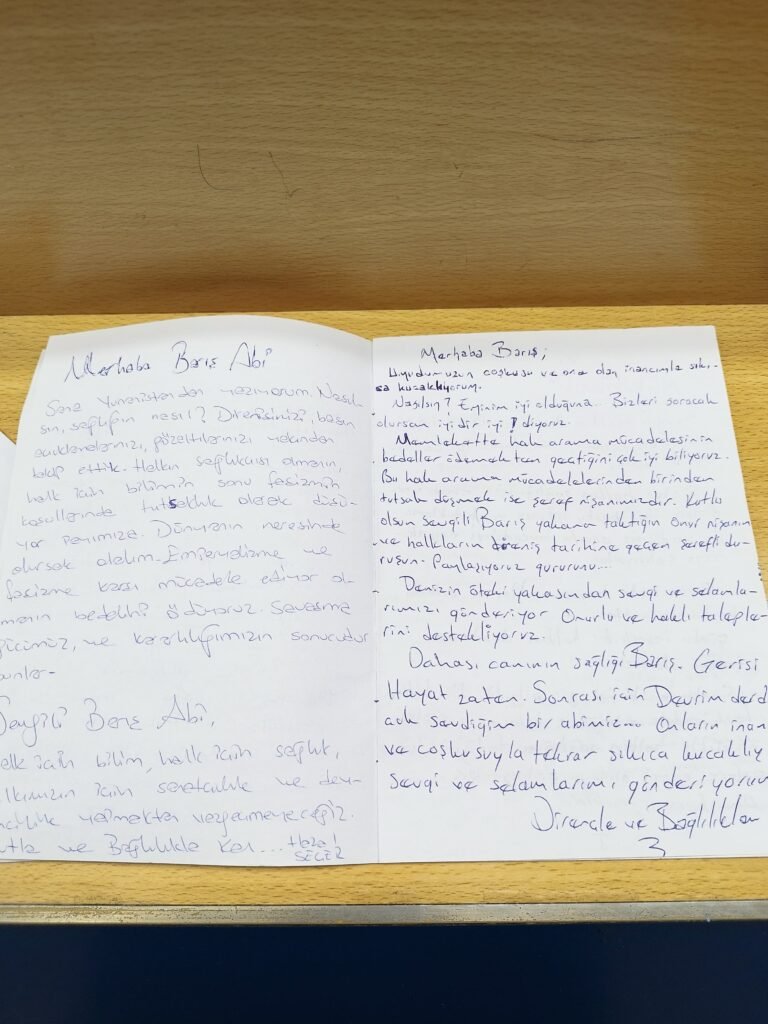 Merhaba Barış Abi
Sana Yunanistandan yazıyorum. Nasıl
sın, sağlığın nasıl? Direnişinizi, basın
açıklamalarınızı, gözaltılarınızı yakından
takip ettik. Halkın sağlıkçısı olmanın,
halk için bilimin sonu faşizmin
koşullarında tutsaklık olarak düşü-
yor payımıza. Dünyanın neresinde
olursak olalım. Emperyalizme ve
faşizme karşı mücadele ediyor ol-
manın bedelini ödüyoruz. Savaşma
gücümüz, ve kararlılığımızın sonucudur
Sevgili Barış Abi,
halk için bilim, halk için sağlık,
halkımızın için sanatçılık ve dev-
yapmaktan vazgeçmeyeceğiz.
ve Bağlılıkla Kal...
SEÇER
Merhaba Barış;
coşkusu ve ona olan inancımla sıkı-
ca kucaklıyorum.
Nasılsın? Eminim iyi olduğuna... Bizleri soracak
olursan iyidir iyi! diyoruz.
Memlekette hak arama mücadelesinin
bedeller ödemekten geçtiğini çok iyi biliyoruz.
Bu hak arama mücadelelerinden birinden
tutsak düşmek ise şeref nişanımızdır. Kutlu
olsun sevgili Barış yakana taktığın onur nişanın
ve halkların direniş tarihine geçen şerefli du-
ruşun. Paylaşıyoruz gururunu...
Denizin öteki yakasından sevgi ve selamla-
rımızı gönderiyor Onurlu ve haklı taleple-
rini destekliyoruz.
Dahası canının sağlığı Barış. Gerisi
Hayat zaten. Sonrası için Devrim derdi
çok sevdiğim bir abimiz. Onların inan
ve coşkusuyla tekrar sıkıca kucaklıy
sevgi ve selamlarımı gönderiyorum
Dirençle ve Bağlılıkla